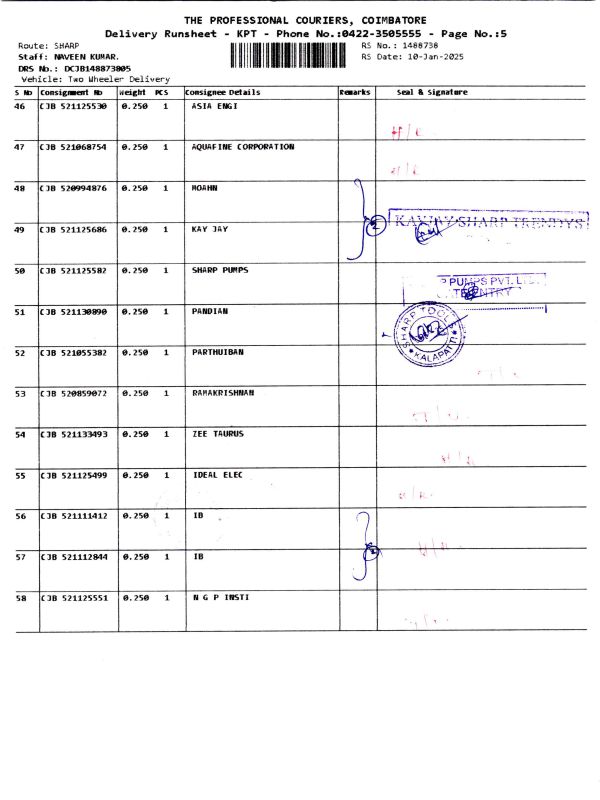 THE PROFESSIONAL COURIERS, COIMBATORE
Delivery Runsheet - KPT - Phone No.:0422-3505555 - Page No.:5
Route: SHARP RS No.: 1488738
Staff: NAVEEN KUMAR. RS Date: 10-Jan-2025
DRS No.: DCJB148873805
Vehicle: Two Wheeler Delivery
S No Consignment No Weight PCS Consignee Details Remarks Seal & Signature
46 CJB 521125530 0.250 1 ASIA ENGI
H/R
47 CJB 521068754 0.250 1 AQUAFINE CORPORATION
H/R
48 CJB 520994876 0.250 1 MOAHN
2 KAYJAY SHARP TRENDYS
49 CJB 521125686 0.250 1 KAY JAY
50 CJB 521125582 0.250 1 SHARP PUMPS
P PUMPS PVT. LTD.
ENTRY
51 CJB 521130890 0.250 1 PANDIAN
SHARP TOOLS
KALAPATTI
52 CJB 521055382 0.250 1 PARTHUIBAN
53 CJB 520859072 0.250 1 RAMAKRISHNAN
H/R
54 CJB 521133493 0.250 1 ZEE TAURUS
H/R
55 CJB 521125499 0.250 1 IDEAL ELEC
H/R
56 CJB 521111412 0.250 1 IB
2 H/R
57 CJB 521112844 0.250 1 IB
58 CJB 521125551 0.250 1 N G P INSTI